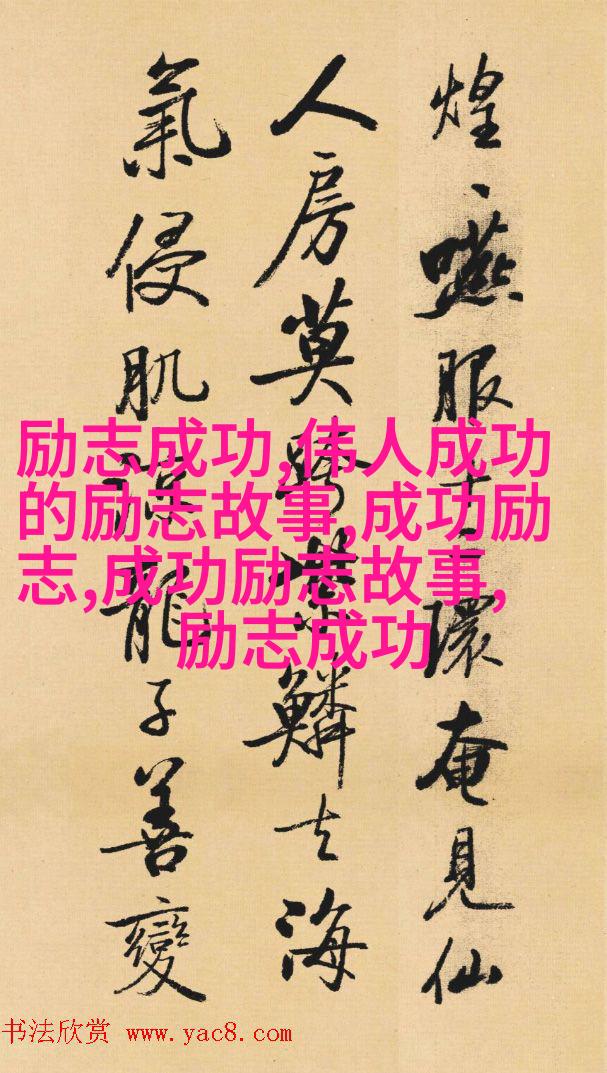 煌、嚥服十二環奄見仙
人房莫跨紫鱗去海
氣侵肌涼龍子善變
励志成功,伟人成功
的励志故事,成功励
志,成功励志故事,
励志成功
书法欣赏 www.yac8.com